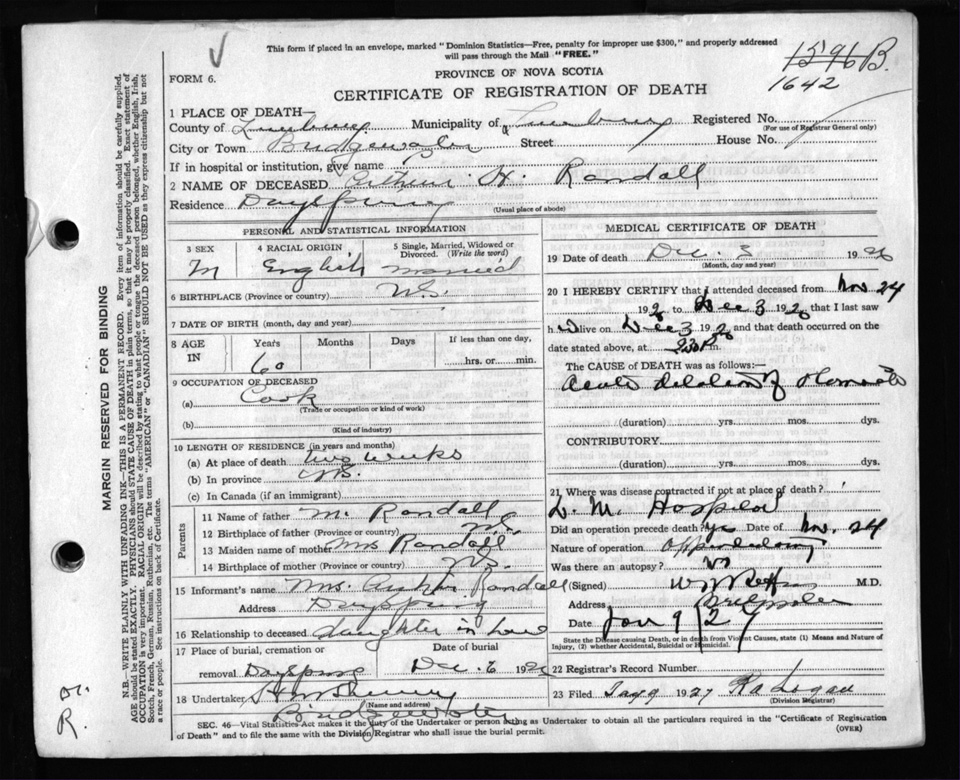 This form if placed in an envelope, marked "Dominion Statistics—Free, penalty for improper use $300," and properly addressed
will pass through the Mail "FREE."
1596B.
1642
FORM 6.
PROVINCE OF NOVA SCOTIA
CERTIFICATE OF REGISTRATION OF DEATH
MARGIN RESERVED FOR BINDING
N.B.—WRITE PLAINLY WITH UNFADING INK—THIS IS A PERMANENT RECORD. Every item of information should be carefully supplied.
AGE should be stated EXACTLY. PHYSICIANS should STATE CAUSE OF DEATH in plain terms, so that it may be properly classified. Exact statement of
OCCUPATION is very important. RACIAL ORIGIN will be described by stating to what people or tongue the deceased person belonged, whether English, Irish,
Scotch, French, German, Russian, Ruthenian, etc. The terms "AMERICAN" or "CANADIAN" SHOULD NOT BE USED as they express citizenship but not
a race or people. See instructions on back of Certificate.
1 PLACE OF DEATH—
County of Lunenburg Municipality of Lunenburg Registered No.
(For use of Registrar General only)
City or Town Bridgewater Street House No.
If in hospital or institution, give name
2 NAME OF DECEASED H. Randall
Residence Dayspring
(Usual place of abode)
PERSONAL AND STATISTICAL INFORMATION
3 SEX 4 RACIAL ORIGIN 5 Single, Married, Widowed or Divorced. (Write the word)
M English married
6 BIRTHPLACE (Province or country) N.S.
7 DATE OF BIRTH (month, day and year)
8 AGE IN Years Months Days If less than one day,
60 hrs. or min.
9 OCCUPATION OF DECEASED
(a) Cook
(Trade or occupation or kind of work)
(b)
(Kind of industry)
10 LENGTH OF RESIDENCE (in years and months)
(a) At place of death two weeks
(b) In province
(c) In Canada (if an immigrant)
Parents
11 Name of father M. Randall
12 Birthplace of father (Province or country) N.S.
13 Maiden name of mother Mrs Randall
14 Birthplace of mother (Province or country) N.S.
15 Informant's name Mrs. Randall
Address Dayspring
16 Relationship to deceased daughter in law
17 Place of burial, cremation or Date of burial
removal Dayspring Dec. 6 1926
18 Undertaker
(Name and address)
Bridgewater
MEDICAL CERTIFICATE OF DEATH
19 Date of death Dec. 3 1926
(Month, day and year)
20 I HEREBY CERTIFY that I attended deceased from Nov 24
1926 to Dec 3 1926 that I last saw
h alive on Dec 3 1926 and that death occurred on the
date stated above, at 230 P m.
The CAUSE OF DEATH was as follows:—
Acute dilation of stomach
(duration) yrs. mos. dys.
CONTRIBUTORY
(duration) yrs. mos. dys.
21 Where was disease contracted if not at place of death?
D. M. Hospital
Did an operation precede death? Yes Date of Nov. 24
Nature of operation
Was there an autopsy? No
(Signed) M.D.
Address
Date Jan 9/27
State the Disease causing Death, or in death from Violent Causes, state (1) Means and Nature of
Injury, (2) whether Accidental, Suicidal or Homicidal.
22 Registrar's Record Number
23 Filed Jan 9 1927
(Division Registrar)
R
SEC. 46—Vital Statistics Act makes it the duty of the Undertaker or person acting as Undertaker to obtain all the particulars required in the "Certificate of Registration
of Death" and to file the same with the Division Registrar who shall issue the burial permit.
(OVER)